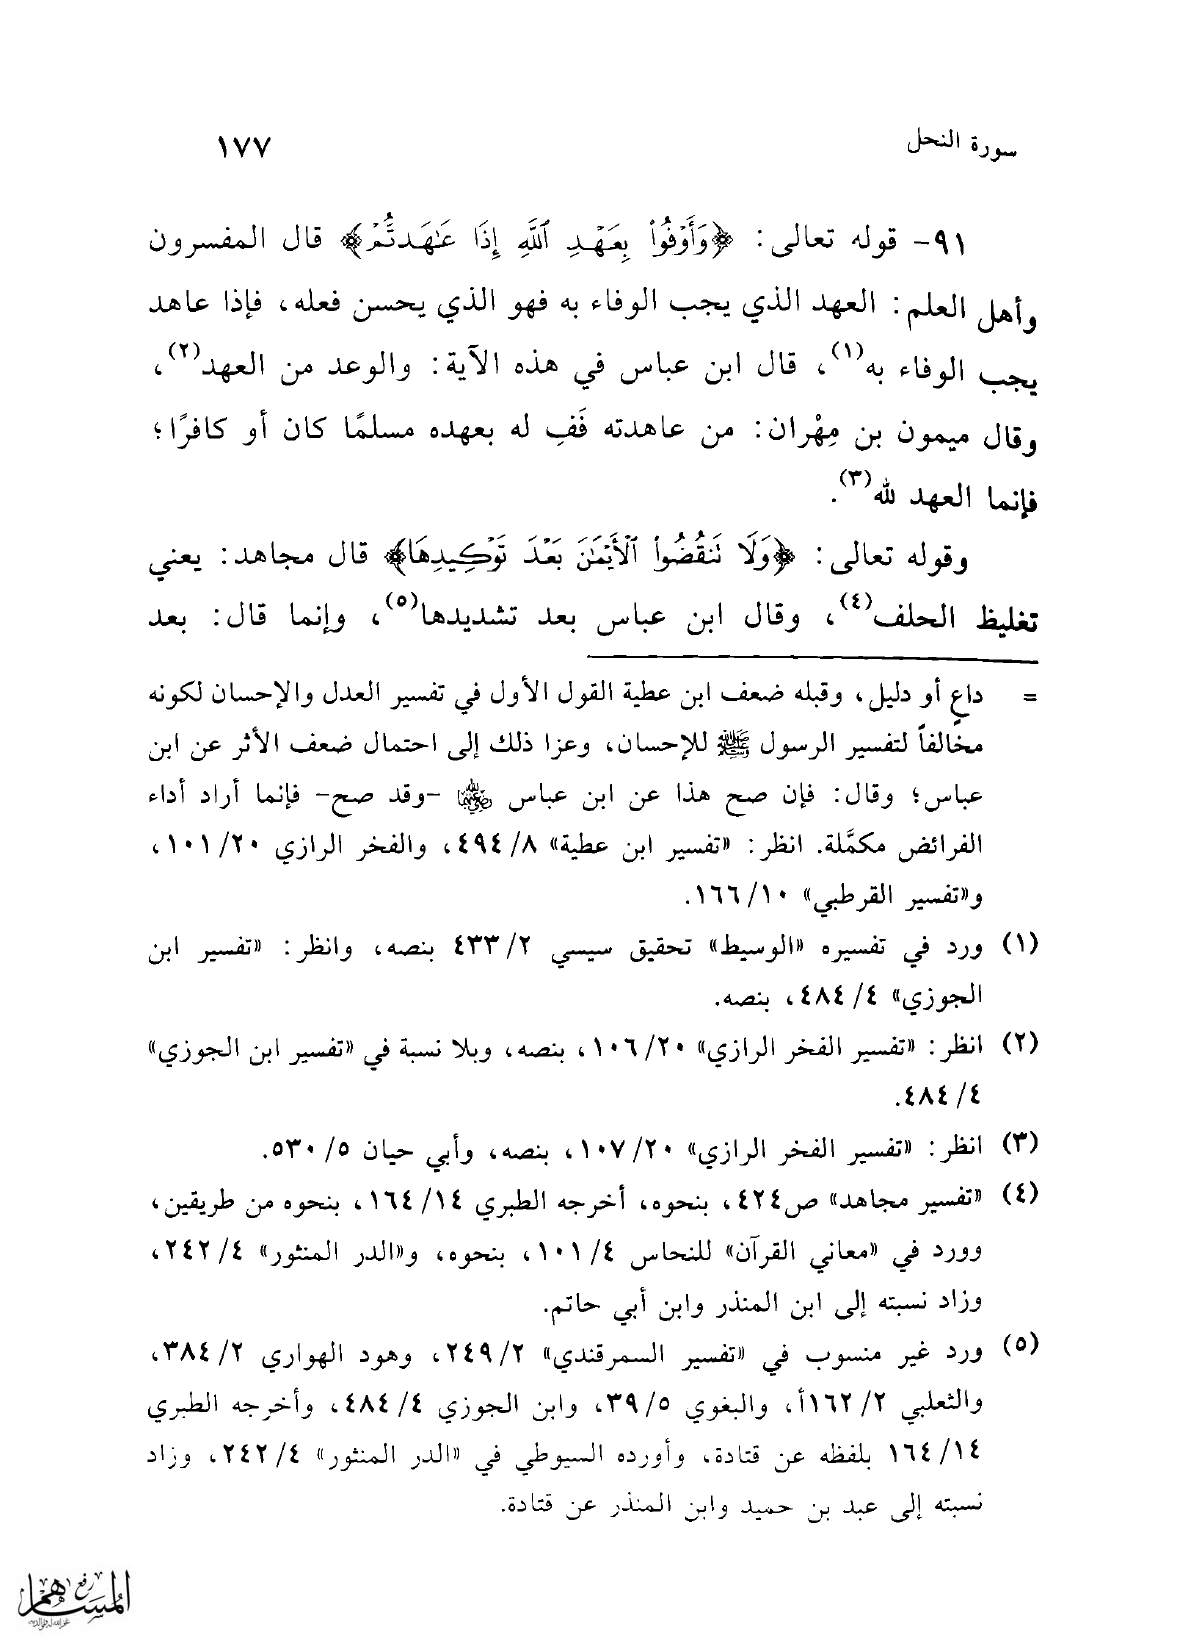 سورة النحل ١٧٧
٩١- قوله تعالى: ﴿وَأَوْفُواْ بِعَهْدِ ٱللَّهِ إِذَا عَٰهَدتُّمْ﴾ قال المفسرون
وأهل العلم: العهد الذي يجب الوفاء به فهو الذي يحسن فعله، فإذا عاهد
يجب الوفاء به(١)، قال ابن عباس في هذه الآية: والوعد من العهد(٢)،
وقال ميمون بن مِهْران: من عاهدته فَفِ له بعهده مسلمًا كان أو كافرًا؛
فإنما العهد لله(٣).
وقوله تعالى: ﴿وَلَا تَنقُضُواْ ٱلْأَيْمَٰنَ بَعْدَ تَوْكِيدِهَا﴾ قال مجاهد: يعني
تغليظ الحلف(٤)، وقال ابن عباس بعد تشديدها(٥)، وإنما قال: بعد
= داعٍ أو دليل، وقبله ضعف ابن عطية القول الأول في تفسير العدل والإحسان لكونه
مخالفاً لتفسير الرسول ﷺ للإحسان، وعزا ذلك إلى احتمال ضعف الأثر عن ابن
عباس؛ وقال: فإن صح هذا عن ابن عباس رضي الله عنهما -وقد صح- فإنما أراد أداء
الفرائض مكمَّلة. انظر: «تفسير ابن عطية» ٨/ ٤٩٤، والفخر الرازي ٢٠/ ١٠١،
و«تفسير القرطبي» ١٠/ ١٦٦.
(١) ورد في تفسيره «الوسيط» تحقيق سيسي ٢/ ٤٣٣ بنصه، وانظر: «تفسير ابن
الجوزي» ٤/ ٤٨٤، بنصه.
(٢) انظر: «تفسير الفخر الرازي» ٢٠/ ١٠٦، بنصه، وبلا نسبة في «تفسير ابن الجوزي»
٤/ ٤٨٤.
(٣) انظر: «تفسير الفخر الرازي» ٢٠/ ١٠٧، بنصه، وأبي حيان ٥/ ٥٣٠.
(٤) «تفسير مجاهد» ص٤٢٤، بنحوه، أخرجه الطبري ١٤/ ١٦٤، بنحوه من طريقين،
وورد في «معاني القرآن» للنحاس ٤/ ١٠١، بنحوه، و«الدر المنثور» ٤/ ٢٤٢،
وزاد نسبته إلى ابن المنذر وابن أبي حاتم.
(٥) ورد غير منسوب في «تفسير السمرقندي» ٢/ ٢٤٩، وهود الهواري ٢/ ٣٨٤،
والثعلبي ٢/ ١٦٢أ، والبغوي ٥/ ٣٩، وابن الجوزي ٤/ ٤٨٤، وأخرجه الطبري
١٤/ ١٦٤ بلفظه عن قتادة، وأورده السيوطي في «الدر المنثور» ٤/ ٢٤٢، وزاد
نسبته إلى عبد بن حميد وابن المنذر عن قتادة.